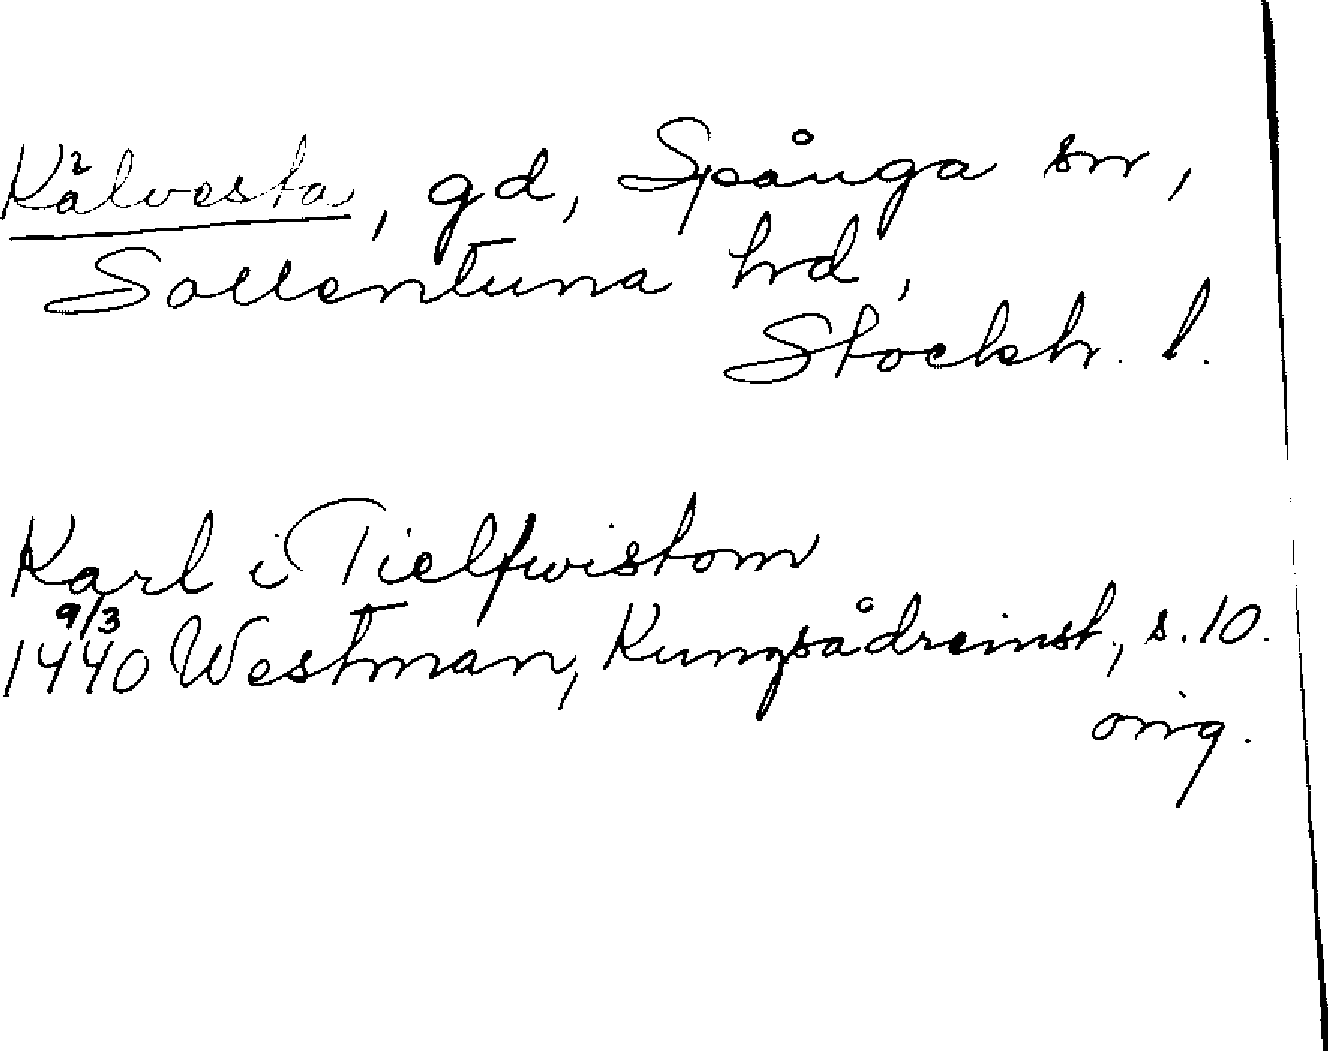 Kälvesta, gd, Spånga sn,
Sollentuna hd,
Stockh. l.
Karl i Tielfwistom
9/3
1440 Westman, Kungsådreinst, s. 10.
orig.